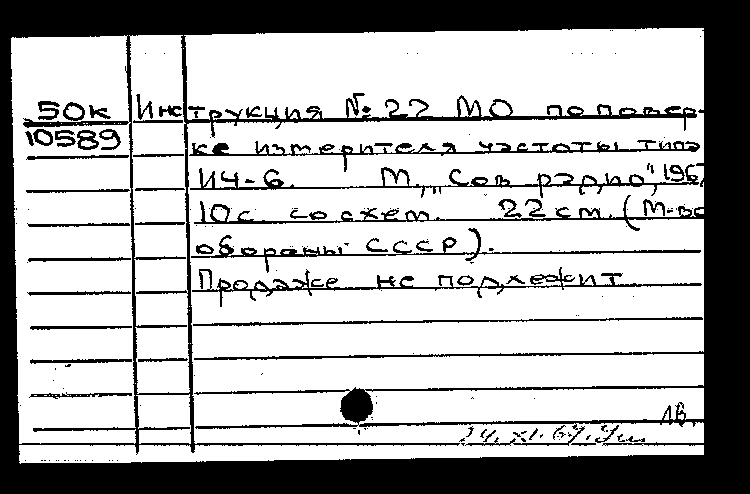 50к Инструкция № 22 МО по повер-
10589 ке измерителя частоты типа
ИЧ-6. М., „Сов радио",
10с. со схем. 22 см. (М-во
обороны СССР).
Продаже не подлежит
ЛВ.
24. XI. 67.